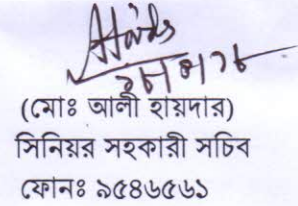 (মোঃ আলী হায়দার)
সিনিয়র সহকারী সচিব
ফোনঃ ৯৫৪৬৫৬১